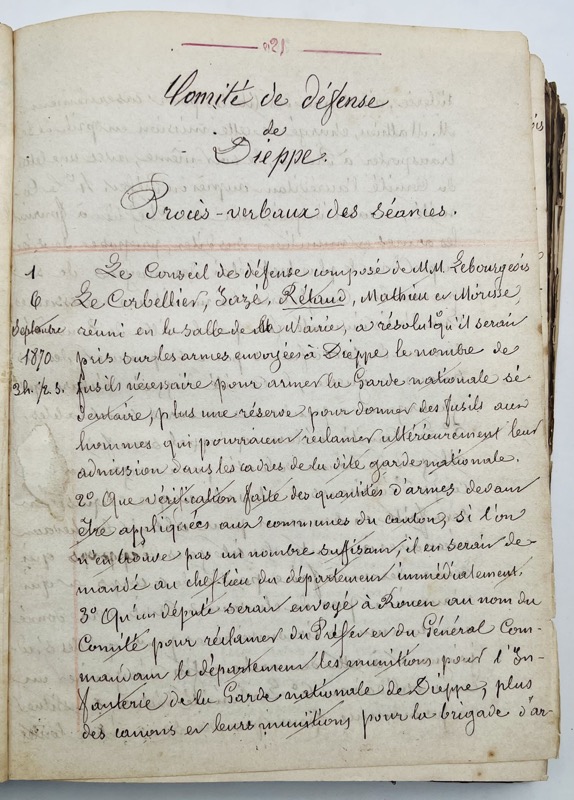 n° 21
Comité de défense
de
Dieppe.
Procès-verbaux des séances.
1 Le Conseil de défense composé de M.M. Lebourgeois
6 Le Corbellier, Sazé, Rétaud, Mathieu et Morisse,
Septembre réuni en la salle de la Mairie, a résolu 1° qu'il serait
1870 pris sur les armes envoyées à Dieppe le nombre de
3h. 1/2 s. fusils nécessaire pour armer la Garde nationale sé-
dentaire, plus une réserve pour donner des fusils aux
hommes qui pourraient réclamer ultérieurement leur
admission dans les cadres de la dite garde nationale.
2° Que vérification faite des quantités d'armes devant
être appliquées aux communes du canton, si l'on
n'en trouve pas un nombre suffisant, il en serait de-
mandé au chef lieu du département immédiatement.
3° Qu'un député serait envoyé à Rouen au nom du
Comité pour réclamer du Préfet et du Général Com-
mandant le département les munitions pour l'In-
fanterie de la Garde nationale de Dieppe, plus
des canons et leurs munitions pour la brigade d'ar-